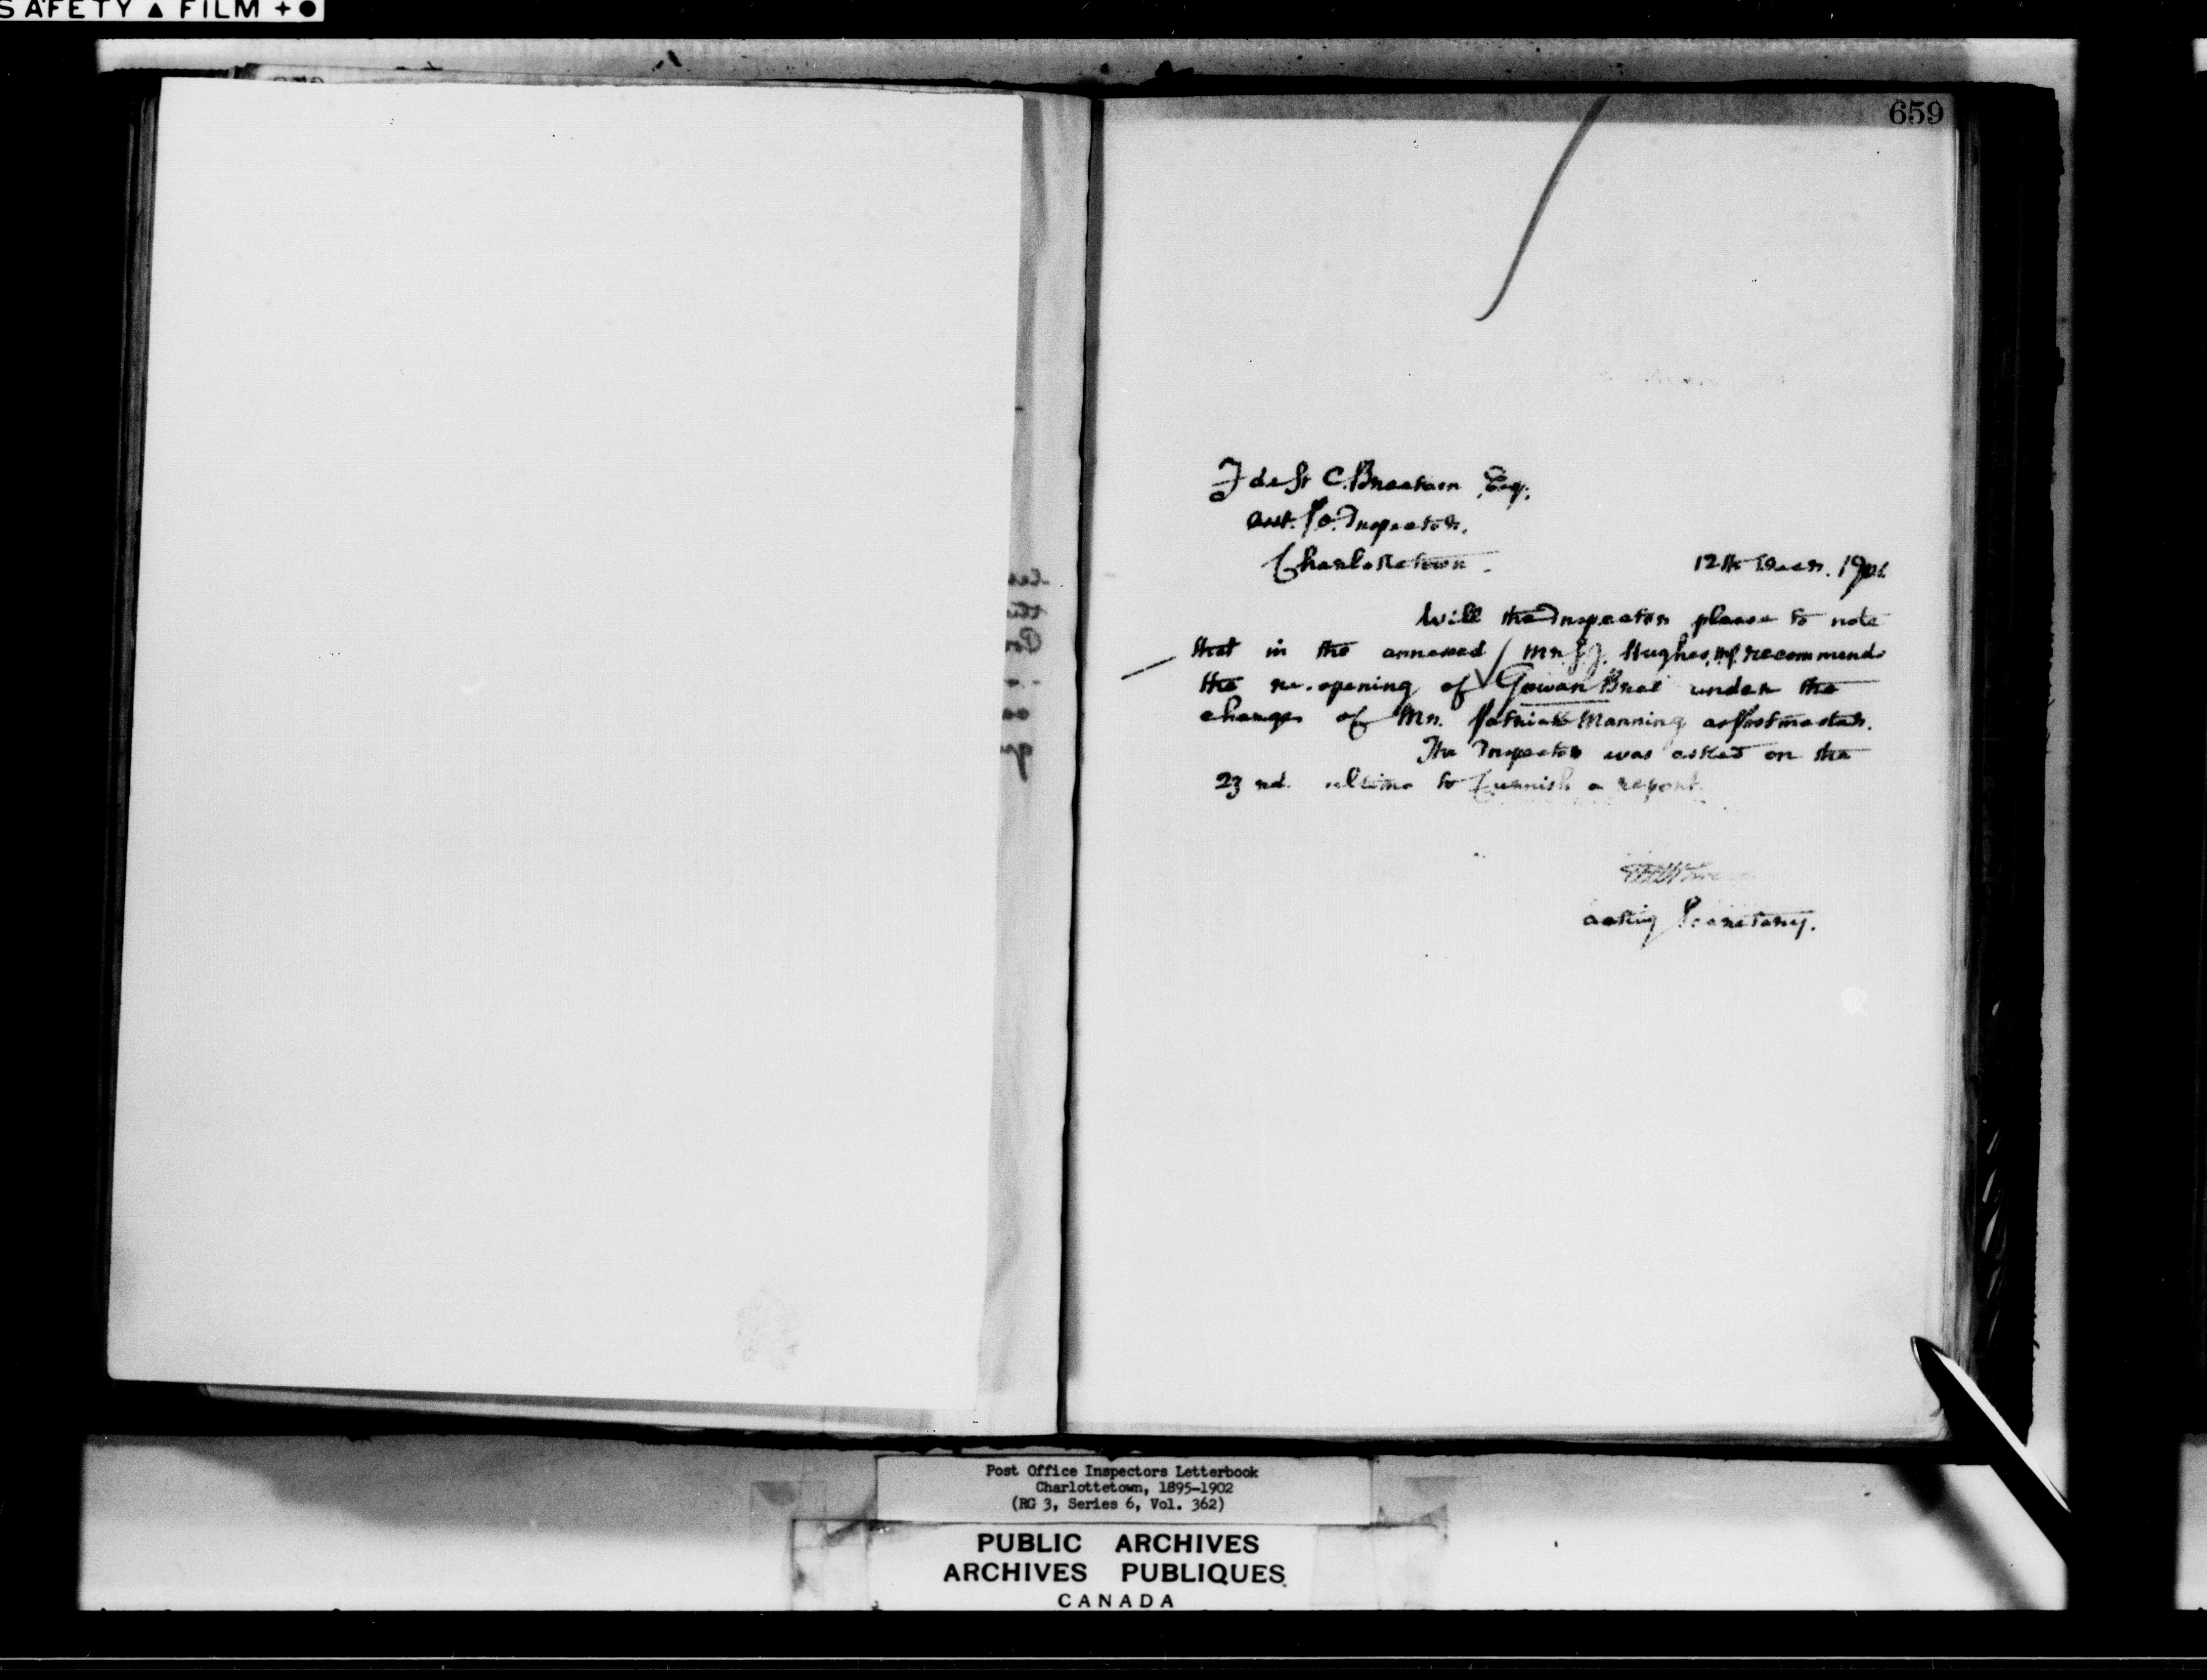 SAFETY ▲ FILM + ●
659
F de St C. Brecken Esq.
Asst. P.O. Inspector,
Charlottetown.
12th Decr. 1901
Will the Inspector please to note
that in the annexed / Mr. J. J. Hughes, M.P. recommends
the re-opening of Gowan Brae under the
charge of Mr. Patrick Manning as Postmaster.
The Inspector was asked on the
23rd. ultimo to furnish a report.
Acting Secretary.
Post Office Inspectors Letterbook
Charlottetown, 1895-1902
(RG 3, Series 6, Vol. 362)
PUBLIC ARCHIVES
ARCHIVES PUBLIQUES
CANADA